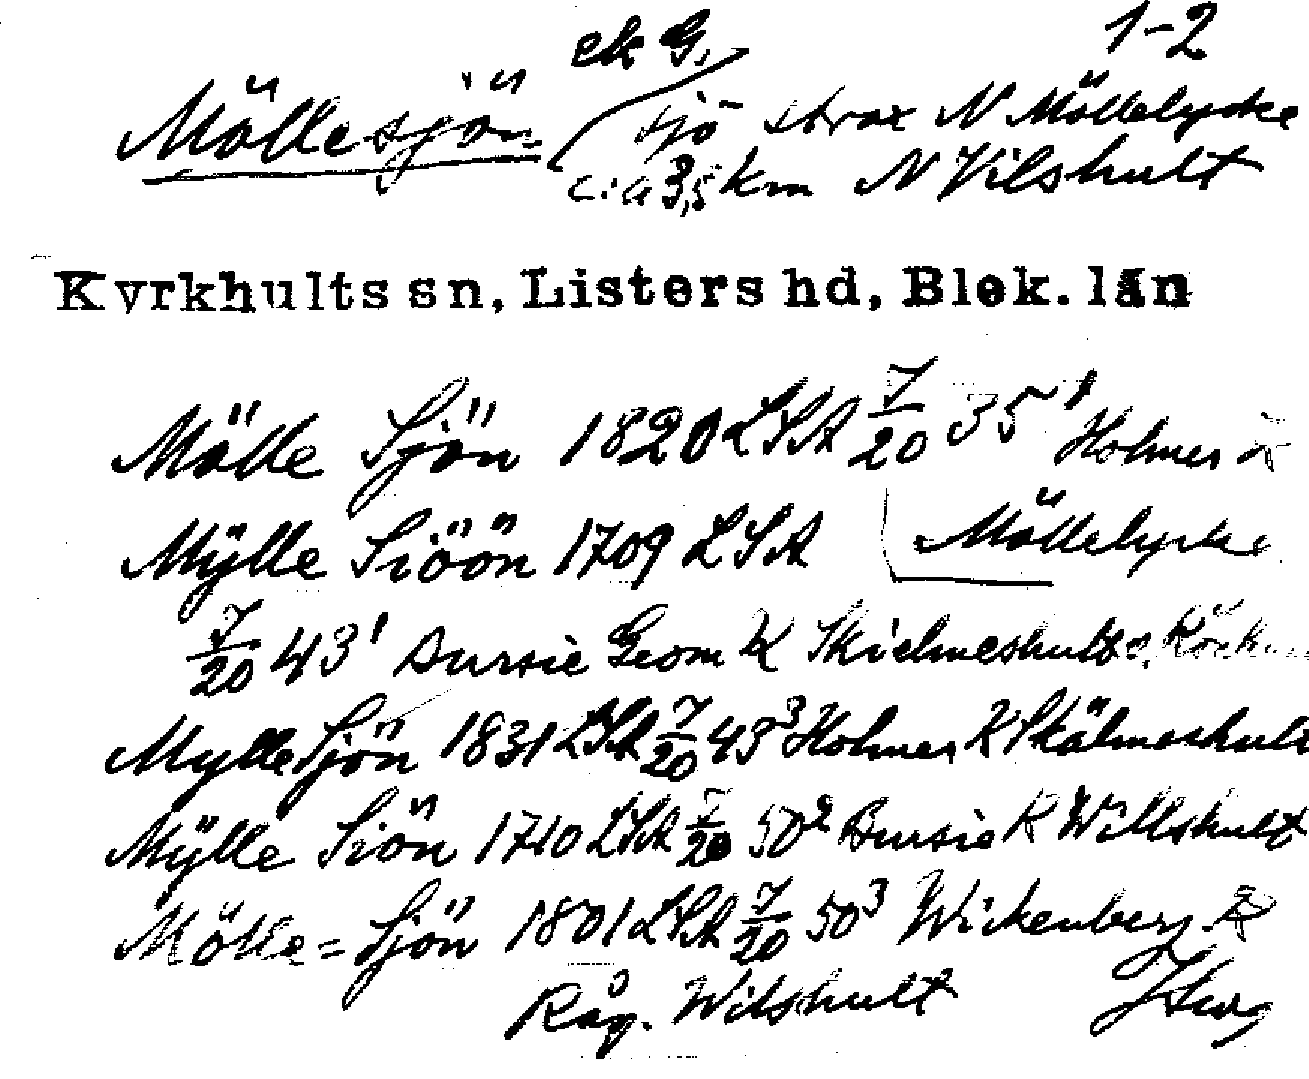 ek G. 1-2
Möllesjön sjö strax N Möllelycke
c:a 3,5 km N Vilshult
Kyrkhults sn, Listers hd, Blek. län
Mölle Sjön 1820 LSA 7/20 35¹ Holmer
Mÿlle Siöön 1709 LSA Möllelycke
7/20 43¹ Dursie Geom K Skielmeshult
Mylle Sjön 1831 LSA 7/20 43³ Holmer K Skälmeshult
Mÿlle Siön 1710 LSA 7/20 50² Dursie K Willshult
Mölle=Sjön 1801 LSA 7/20 50³ Wickenberg K
Råg. Wilshult